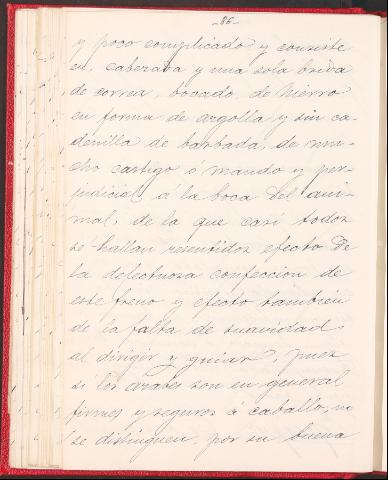 -86-
y poco complicado y consiste
en, caberada y una sola brida
de correa, bocado, de hierro
en forma de argolla y sin ca-
denilla de barbada, de mu-
cho castigo ó mando y per-
judicial, á la boca del ani-
mal, de la que casi todos
se hallan resentidos efecto de
la defectuosa confección de
este freno y efecto también
de la falta de suavidad
al dirigir y guiar, pues
si los arabes son en general
firmes y seguros á caballo, no
se distinguen, por su buena